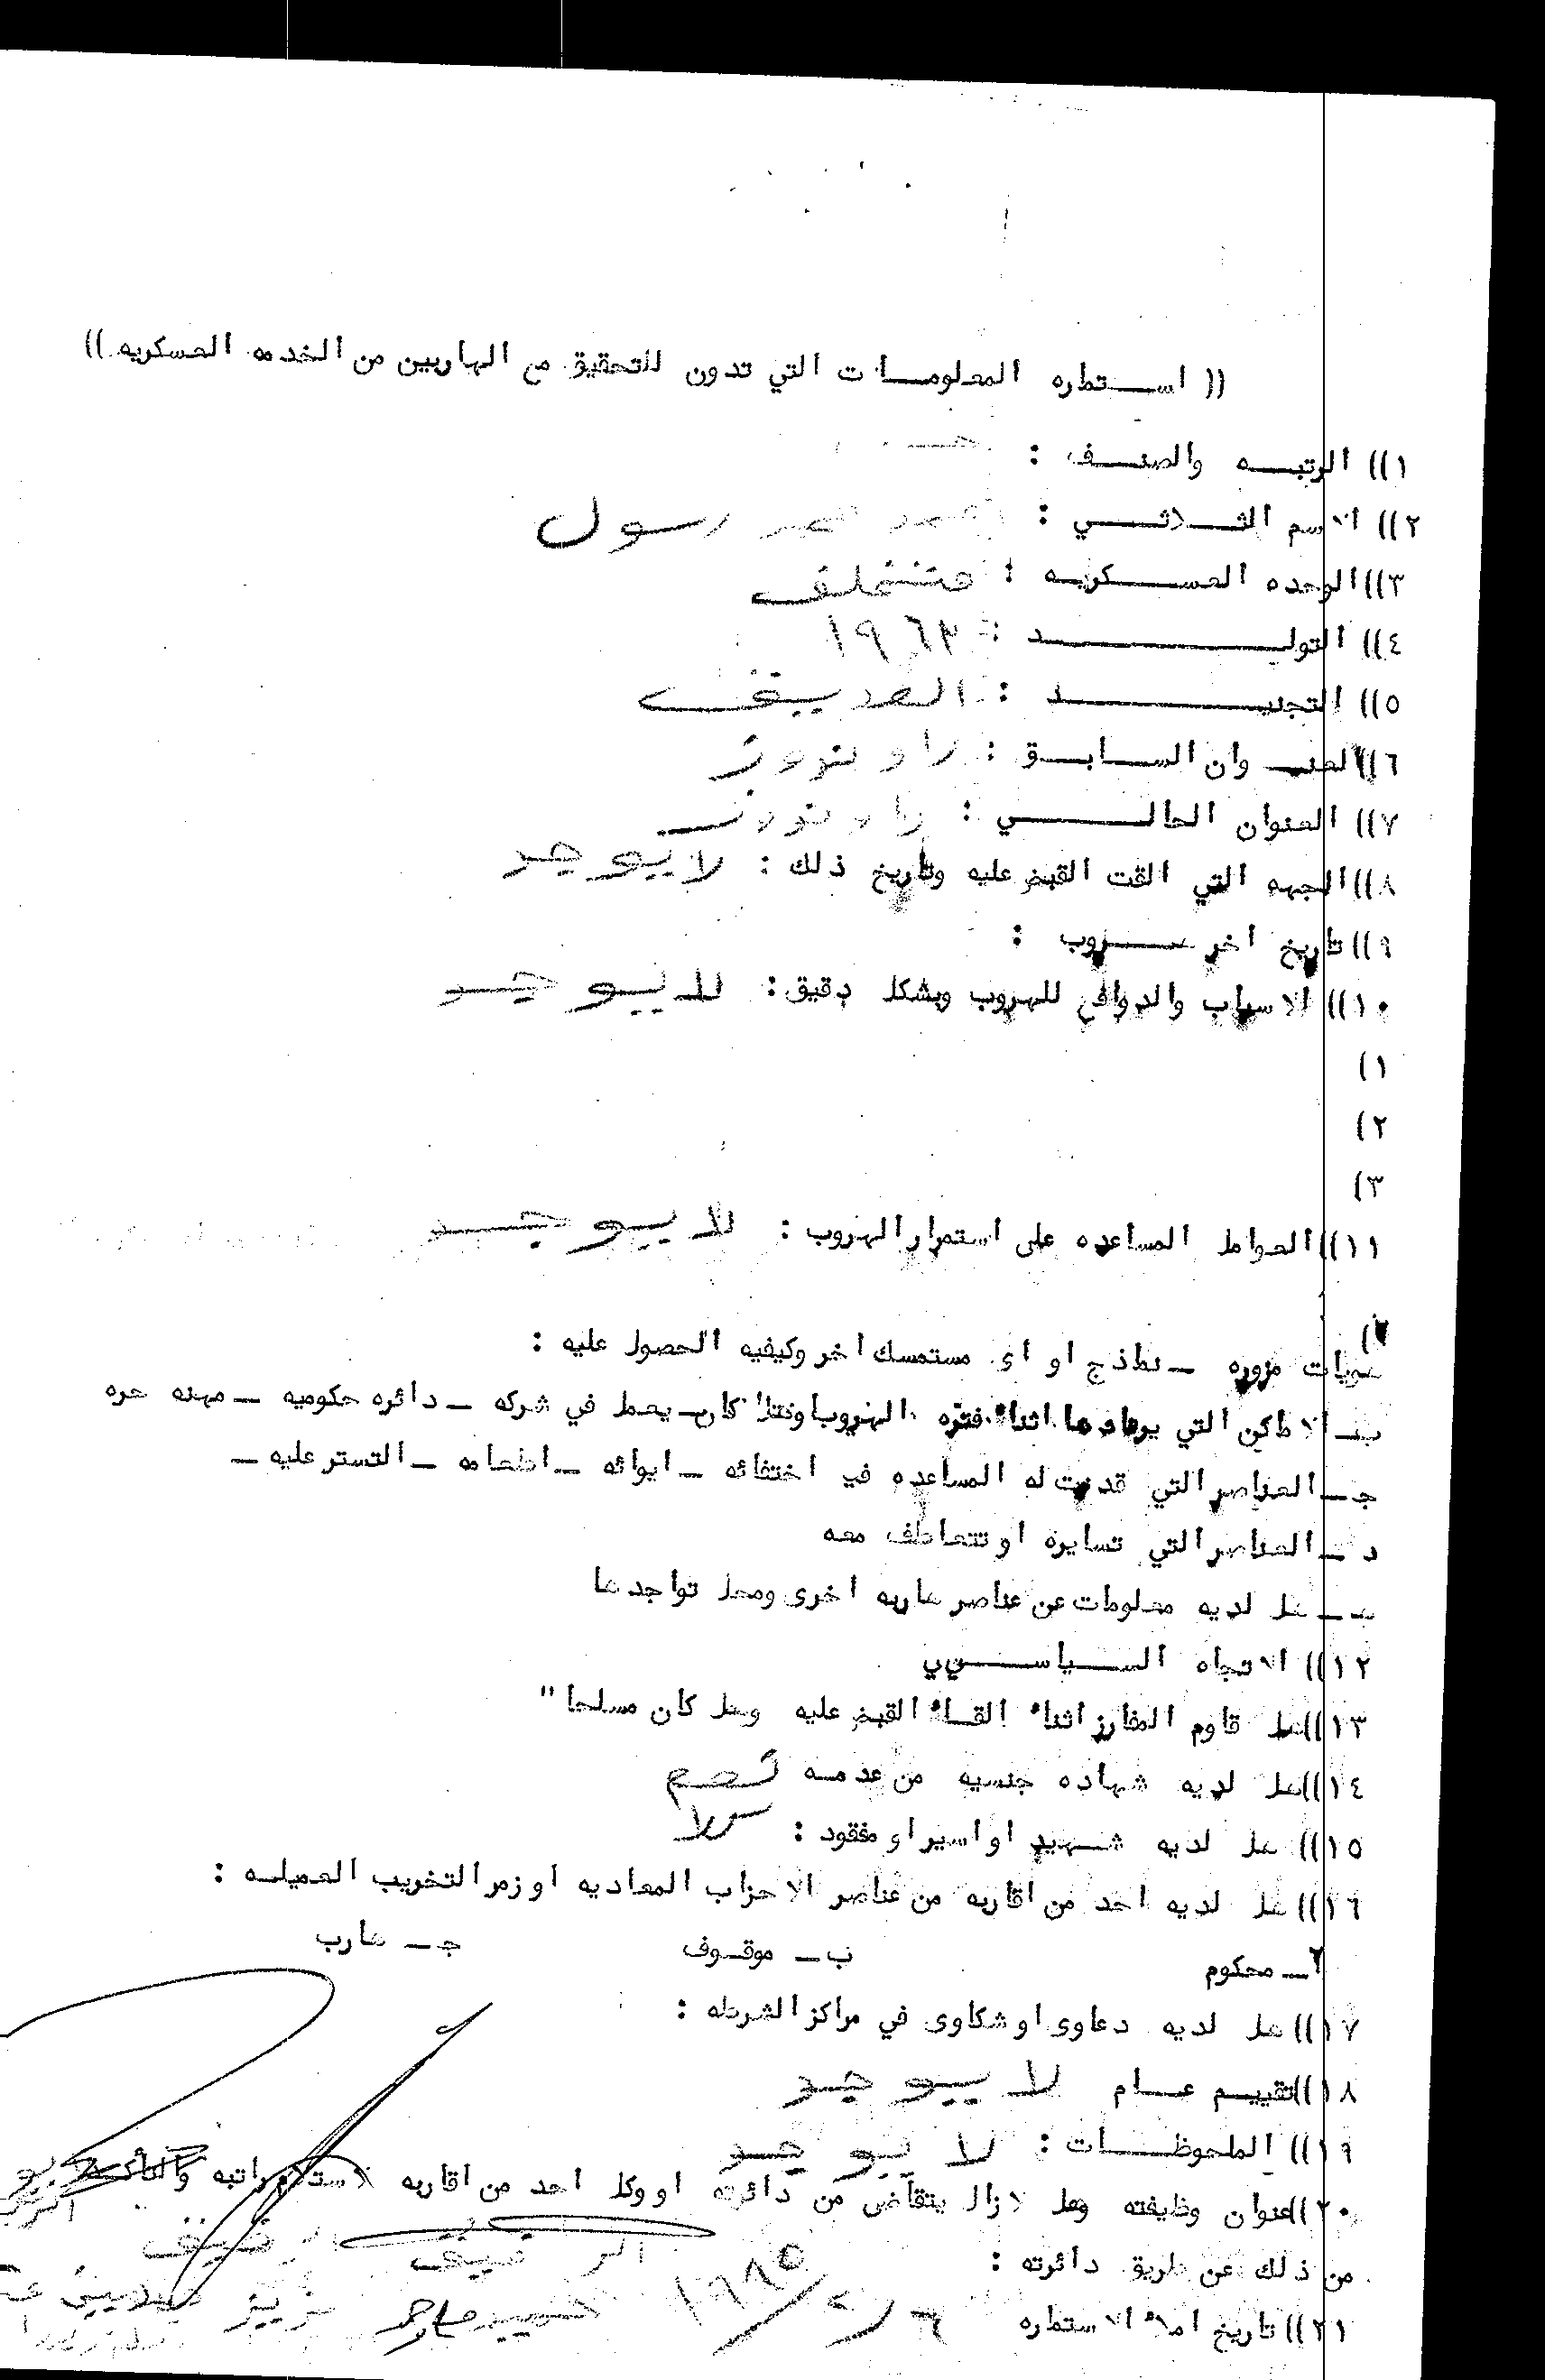 (( استماره المعلومات التي تدون للتحقيق مع الهاربين من الخدمه العسكريه ))
١)) الرتبه والصنف :
٢)) الاسم الثلاثي : رسول
٣)) الوحده العسكريه : متخلف
٤)) التولد : ١٩٦٣
٥)) التجنيد :
٦)) العنوان السابق : راوندوز
٧)) العنوان الحالي : راوندوز
٨)) الجهه التي القت القبض عليه وتاريخ ذلك : لا يوجد
٩)) تاريخ اخر هروب :
١٠)) الاسباب والدوافع للهروب وبشكل دقيق : لا يوجد
١)
٢)
٣)
١١)) العوامل المساعده على استمرار الهروب : لا يوجد
هويات مزوره - نماذج او اى مستمسك اخر وكيفيه الحصول عليه :
ب - الاماكن التي يرتادها اثناء فتره الهروب كان يعمل في شركه - دائره حكوميه - مهنه حره
ج - العناصر التي قدمت له المساعده في اختفائه - ايوائه - اطعامه - التستر عليه -
د - العناصر التي تسايره او تتعاطف معه
هـ - هل لديه معلومات عن عناصر هاربه اخرى ومحل تواجدها
١٢)) الاتجاه السياسي
١٣)) هل قاوم المفارز اثناء القاء القبض عليه وهل كان مسلحا "
١٤)) هل لديه شهاده جنسيه من عدمه نعم
١٥)) هل لديه شهيد او اسير او مفقود : كلا
١٦)) هل لديه احد من اقاربه من عناصر الاحزاب المعاديه او زمر التخريب العميله :
أ - محكوم ب - موقوف ج - هارب
١٧)) هل لديه دعاوى او شكاوى في مراكز الشرطه :
١٨)) تقييم عام لا يوجد
١٩)) الملحوظات : لا يوجد
٢٠)) عنوان وظيفته وهل لازال يتقاضى من دائرته او وكل احد من اقاربه لاستلام راتبه والتأكد
من ذلك عن طريق دائرته :
الرفيق الرفيق
٢١)) تاريخ املاء الاستماره ٦/٢/١٩٨٥